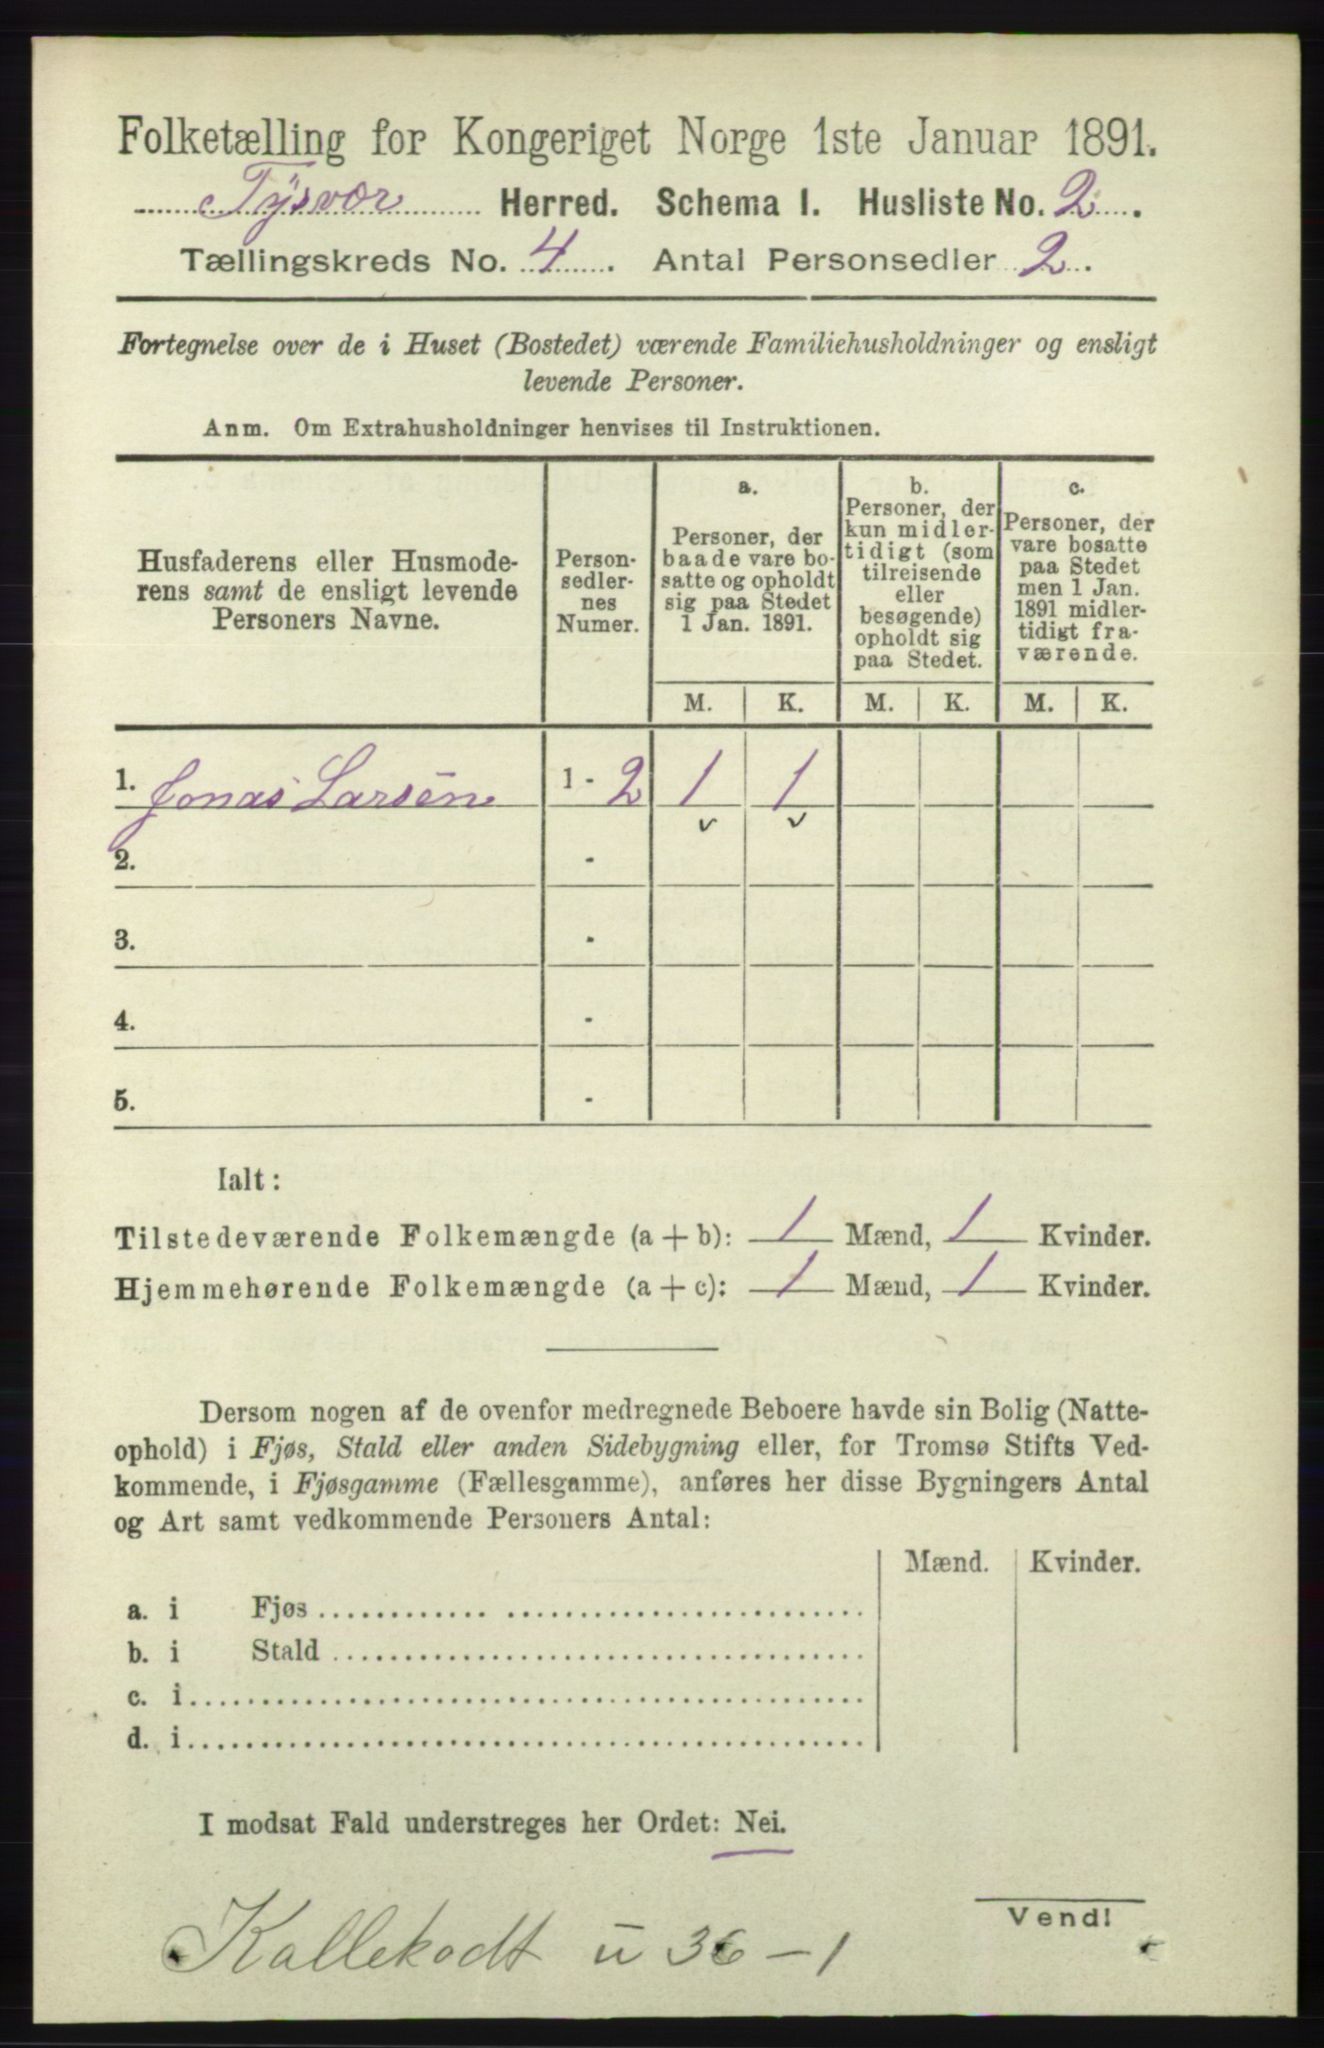 Folketælling for Kongeriget Norge 1ste Januar 1891.
Tysvær Herred. Schema I. Husliste No. 2.
Tællingskreds No. 4. Antal Personsedler 2.
Fortegnelse over de i Huset (Bostedet) værende Familiehusholdninger og ensligt
levende Personer.
Anm. Om Extrahusholdninger henvises til Instruktionen.
Husfaderens eller Husmode-
rens samt de ensligt levende
Personers Navne.
Person-
sedler-
nes
Numer.
a.
Personer, der
baade vare bo-
satte og opholdt
sig paa Stedet
1 Jan. 1891.
b.
Personer, der
kun midler-
tidigt (som
tilreisende
eller
besøgende)
opholdt sig
paa Stedet.
c.
Personer, der
vare bosatte
paa Stedet
men 1 Jan.
1891 midler-
tidigt fra-
værende.
M. K. M. K. M. K.
1. Jonas Larsen 1 - 2 1 1
2. -
3. -
4. -
5. -
Ialt:
Tilstedeværende Folkemængde (a + b): 1 Mænd, 1 Kvinder.
Hjemmehørende Folkemængde (a + c): 1 Mænd, 1 Kvinder.
Dersom nogen af de ovenfor medregnede Beboere havde sin Bolig (Natte-
ophold) i Fjøs, Stald eller anden Sidebygning eller, for Tromsø Stifts Ved-
kommende, i Fjøsgamme (Fællesgamme), anføres her disse Bygningers Antal
og Art samt vedkommende Personers Antal:
Mænd. Kvinder.
a. i Fjøs
b. i Stald
c. i
d. i
I modsat Fald understreges her Ordet: Nei.
Vend!
Kallekodt u 36 - 1